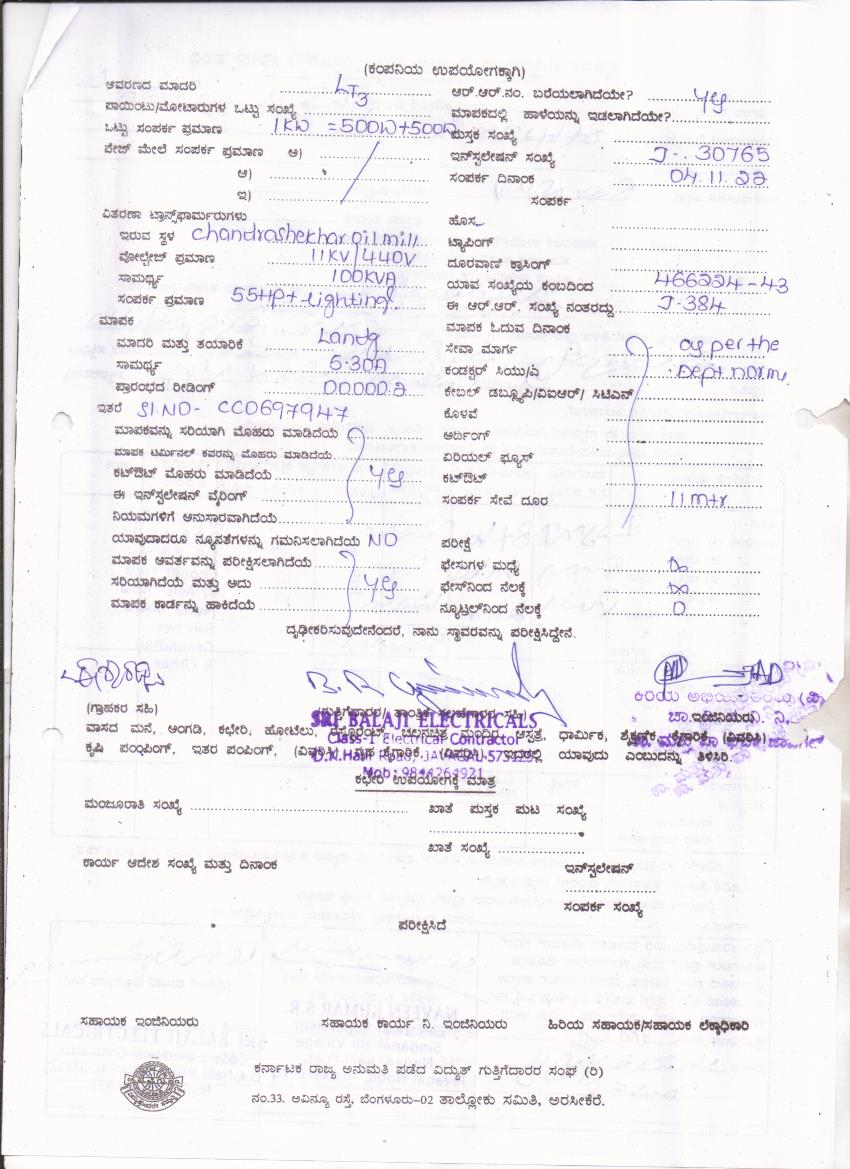 (ಕಂಪನಿಯ ಉಪಯೋಗಕ್ಕಾಗಿ)
ಆವರಣದ ಮಾದರಿ LT3
ಪಾಯಿಂಟು/ಮೋಟಾರುಗಳ ಒಟ್ಟು ಸಂಖ್ಯೆ
ಒಟ್ಟು ಸಂಪರ್ಕ ಪ್ರಮಾಣ 1KW = 500W+500W
ಪೇಜ್ ಮೇಲೆ ಸಂಪರ್ಕ ಪ್ರಮಾಣ ಅ)
ಆ)
ಇ)
ವಿತರಣಾ ಟ್ರಾನ್ಸ್‌ಫಾರ್ಮರುಗಳು
ಇರುವ ಸ್ಥಳ Chandrashekhar oil mill
ವೋಲ್ಟೇಜ್ ಪ್ರಮಾಣ 11KV/440V
ಸಾಮರ್ಥ್ಯ 100KVA
ಸಂಪರ್ಕ ಪ್ರಮಾಣ 55HP+lighting
ಮಾಪಕ
ಮಾದರಿ ಮತ್ತು ತಯಾರಿಕೆ Landg
ಸಾಮರ್ಥ್ಯ 5-30A
ಪ್ರಾರಂಭದ ರೀಡಿಂಗ್ 00000.2
ಇತರೆ Sl.NO- CC0697947
ಮಾಪಕವನ್ನು ಸರಿಯಾಗಿ ಮೊಹರು ಮಾಡಿದೆಯೆ
ಮಾಪಕ ಟರ್ಮಿನಲ್ ಕವರನ್ನು ಮೊಹರು ಮಾಡಿದೆಯೆ
ಕಟ್‌ಔಟ್ ಮೊಹರು ಮಾಡಿದೆಯೆ yes
ಈ ಇನ್‌ಸ್ಟಲೇಷನ್ ವೈರಿಂಗ್
ನಿಯಮಗಳಿಗೆ ಅನುಸಾರವಾಗಿದೆಯೆ
ಯಾವುದಾದರೂ ನ್ಯೂನತೆಗಳನ್ನು ಗಮನಿಸಲಾಗಿದೆಯೆ NO
ಮಾಪಕ ಆವರ್ತವನ್ನು ಪರೀಕ್ಷಿಸಲಾಗಿದೆಯೆ
ಸರಿಯಾಗಿದೆಯೆ ಮತ್ತು ಅದು yes
ಮಾಪಕ ಕಾರ್ಡನ್ನು ಹಾಕಿದೆಯೆ
ಆರ್.ಆರ್.ನಂ. ಬರೆಯಲಾಗಿದೆಯೇ? yes
ಮಾಪಕದಲ್ಲಿ ಹಾಳೆಯನ್ನು ಇಡಲಾಗಿದೆಯೇ?
ಪುಸ್ತಕ ಸಂಖ್ಯೆ
ಇನ್‌ಸ್ಟಲೇಷನ್ ಸಂಖ್ಯೆ J-30765
ಸಂಪರ್ಕ ದಿನಾಂಕ 04.11.22
ಸಂಪರ್ಕ
ಹೊಸ
ಟ್ಯಾಪಿಂಗ್
ದೂರವಾಣಿ ಕ್ರಾಸಿಂಗ್
ಯಾವ ಸಂಖ್ಯೆಯ ಕಂಬದಿಂದ 466224-43
ಈ ಆರ್.ಆರ್. ಸಂಖ್ಯೆ ನಂತರದ್ದು J-384
ಮಾಪಕ ಓದುವ ದಿನಾಂಕ
ಸೇವಾ ಮಾರ್ಗ as per the
ಕಂಡಕ್ಟರ್ ಸಿಯು/ಎ Dept norms
ಕೇಬಲ್ ಡಬ್ಲ್ಯೂಪಿ/ವಿಐಆರ್/ ಸಿಟಿಎಸ್
ಕೊಳವೆ
ಅರ್ದಿಂಗ್
ಏರಿಯಲ್ ಫ್ಯೂಸ್
ಕಟ್‌ಔಟ್
ಸಂಪರ್ಕ ಸೇವೆ ದೂರ 11mtr
ಪರೀಕ್ಷೆ
ಫೇಸುಗಳ ಮಧ್ಯೆ
ಫೇಸ್‌ನಿಂದ ನೆಲಕ್ಕೆ
ನ್ಯೂಟ್ರಲ್‌ನಿಂದ ನೆಲಕ್ಕೆ 0
ದೃಢೀಕರಿಸುವುದೇನೆಂದರೆ, ನಾನು ಸ್ಥಾವರವನ್ನು ಪರೀಕ್ಷಿಸಿದ್ದೇನೆ.
(ಗ್ರಾಹಕರ ಸಹಿ)
SRI BALAJI ELECTRICALS
Class-1 Electrical Contractor
Mob: 9844264921
ವಾಸದ ಮನೆ, ಅಂಗಡಿ, ಕಛೇರಿ, ಹೋಟೆಲು, ಚಲನಚಿತ್ರ ಮಂದಿರ, ಆಸ್ಪತ್ರೆ, ಧಾರ್ಮಿಕ, ಶೈಕ್ಷಣಿಕ, ಕೈಗಾರಿಕೆ, (ವಿವರಿಸಿ)
ಕೃಷಿ ಪಂಪಿಂಗ್, ಇತರ ಪಂಪಿಂಗ್, (ವಿವರಿಸಿ), ಗೃಹ ಕೈಗಾರಿಕೆ, (ವಿವರಿಸಿ), ಇದರಲ್ಲಿ ಯಾವುದು ಎಂಬುದನ್ನು ತಿಳಿಸಿರಿ.
ಕಛೇರಿ ಉಪಯೋಗಕ್ಕೆ ಮಾತ್ರ
ಮಂಜೂರಾತಿ ಸಂಖ್ಯೆ ಖಾತೆ ಪುಸ್ತಕ ಪುಟ ಸಂಖ್ಯೆ
ಖಾತೆ ಸಂಖ್ಯೆ
ಕಾರ್ಯ ಆದೇಶ ಸಂಖ್ಯೆ ಮತ್ತು ದಿನಾಂಕ ಇನ್‌ಸ್ಟಲೇಷನ್
ಸಂಪರ್ಕ ಸಂಖ್ಯೆ
ಪರೀಕ್ಷಿಸಿದೆ
ಸಹಾಯಕ ಇಂಜಿನಿಯರು ಸಹಾಯಕ ಕಾರ್ಯ ನಿ. ಇಂಜಿನಿಯರು ಹಿರಿಯ ಸಹಾಯಕ/ಸಹಾಯಕ ಲೆಕ್ಕಾಧಿಕಾರಿ
ಕರ್ನಾಟಕ ರಾಜ್ಯ ಅನುಮತಿ ಪಡೆದ ವಿದ್ಯುತ್ ಗುತ್ತಿಗೆದಾರರ ಸಂಘ (ರಿ)
ನಂ.33. ಅವಿನ್ಯೂ ರಸ್ತೆ, ಬೆಂಗಳೂರು-02 ತಾಲ್ಲೋಕು ಸಮಿತಿ, ಅರಸೀಕೆರೆ.